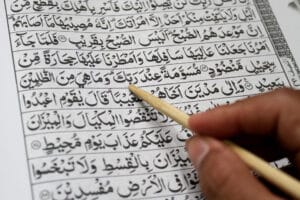 الَّيْلِ وَلَا يَلْتَفِتْ مِنْكُمْ اَحَدٌ اِلَّا امْرَاَتَكَ اِنَّهٗ مُصِيْبُهَا مَآ
اِنَّ مَوْعِدَهُمُ الصُّبْحُ اَلَيْسَ الصُّبْحُ بِقَرِيْبٍ فَلَمَّا جَآءَ
اَمْرُنَا جَعَلْنَا عَالِيَهَا سَافِلَهَا وَاَمْطَرْنَا عَلَيْهَا حِجَارَةً مِّنْ
سِجِّيْلٍ مَّنْضُوْدٍ مُّسَوَّمَةً عِنْدَ رَبِّكَ وَمَا هِيَ مِنَ الظّٰلِمِيْنَ
وَاِلٰى مَدْيَنَ اَخَاهُمْ شُعَيْبًا قَالَ يٰقَوْمِ اعْبُدُوا
وَلَا تَنْقُصُوا الْمِكْيَالَ وَالْمِيْزَانَ
عَلَيْكُمْ عَذَابَ يَوْمٍ مُّحِيْطٍ
بِالْقِسْطِ وَلَا تَبْخَسُوا
فِى الْاَرْضِ مُفْسِدِيْنَ